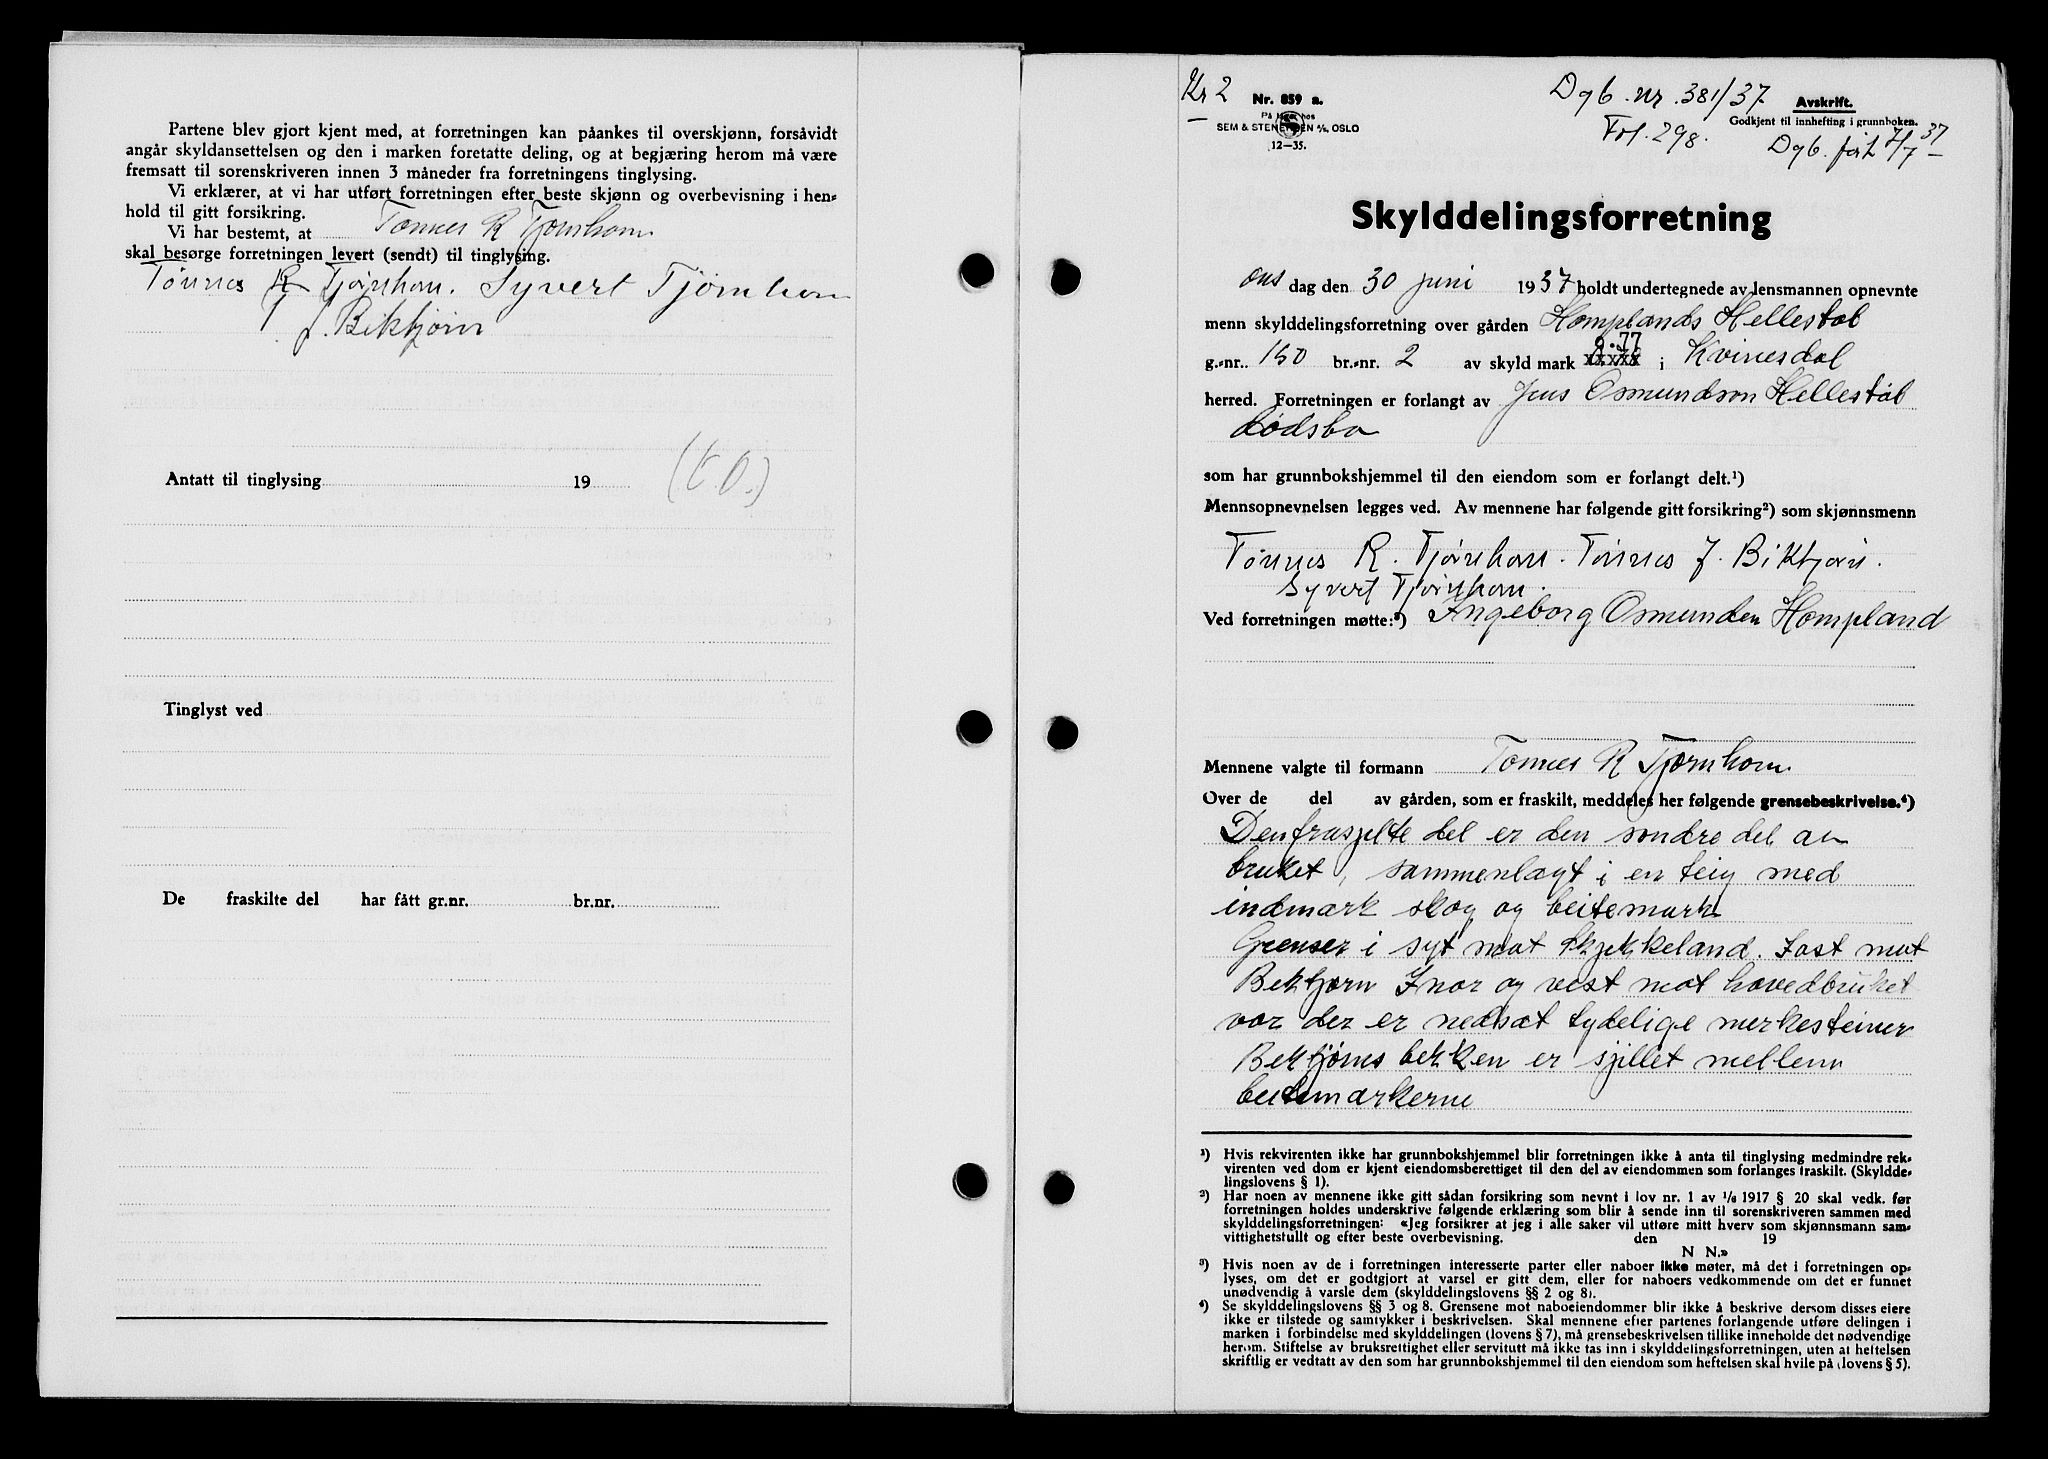 Partene blev gjort kjent med, at forretningen kan påankes til overskjønn, forsåvidt
angår skyldansettelsen og den i marken foretatte deling, og at begjæring herom må være
fremsatt til sorenskriveren innen 3 måneder fra forretningens tinglysing.
Vi erklærer, at vi har utført forretningen efter beste skjønn og overbevisning i hen-
hold til gitt forsikring.
Vi har bestemt, at Tønnes R Tjørnhom
skal besørge forretningen levert (sendt) til tinglysing.
Tønnes R Tjørnhom. Syvert Tjørnhom
T J. Bektjørn
Antatt til tinglysing 19
Tinglyst ved
De fraskilte del har fått gr.nr. br.nr.
Kr 2
Nr. 859 a.
På lager hos
SEM & STENERSEN A/S, OSLO
12—35.
Dgb. nr. 381/37
Fol. 298.
Avskrift.
Godkjent til innhefting i grunnboken.
Dgb. ført 7/7 37
Skylddelingsforretning
ons dag den 30 juni 1937 holdt undertegnede av lensmannen opnevnte
menn skylddelingsforretning over gården Homplands Hellestøl
g.-nr. 150 br.-nr. 2 av skyld mark 0.77 i Kvinesdal
herred. Forretningen er forlangt av Jens Osmundson Hellestøl
dødsbo
som har grunnbokshjemmel til den eiendom som er forlangt delt.¹)
Mennsopnevnelsen legges ved. Av mennene har følgende gitt forsikring²) som skjønnsmenn
Tønnes R. Tjørnhom. Tønnes J. Bektjørn.
Syvert Tjørnhom.
Ved forretningen møtte:³) Ingeborg Osmunden Hompland
Mennene valgte til formann Tønnes R Tjørnhom
Over de del av gården, som er fraskilt, meddeles her følgende grensebeskrivelse.⁴)
Den fraspelte del er den søndre del av
bruket, sammenlagt i en teig med
indmark skog og beitemark
Grenser i syt mot Skjekkeland. I øst mot
Bektjørn I nor og vest mot hovedbruket
vor der er nedsat tydelige merkesteiner
Bektjørns bekken er sjillet mellem
beitemarkerne
¹) Hvis rekvirenten ikke har grunnbokshjemmel blir forretningen ikke å anta til tinglysing medmindre rek-
virenten ved dom er kjent eiendomsberettiget til den del av eiendommen som forlanges fraskilt. (Skyldde-
lingslovens § 1).
²) Har noen av mennene ikke gitt sådan forsikring som nevnt i lov nr. 1 av 1/6 1917 § 20 skal vedk. før
forretningen holdes underskrive følgende erklæring som blir å sende inn til sorenskriveren sammen med
skylddelingsforretningen: «Jeg forsikrer at jeg i alle saker vil utføre mitt hverv som skjønnsmann sam-
vittighetsfullt og efter beste overbevisning. den 19
N N.»
³) Hvis noen av de i forretningen interesserte parter eller naboer ikke møter, må det i forretningen op-
lyses, om det er godtgjort at varsel er gitt dem, eller for naboers vedkommende om det er funnet
unødvendig å varsle dem (skylddelingslovens §§ 2 og 8).
⁴) Se skylddelingslovens §§ 3 og 8. Grensene mot naboeiendommer blir ikke å beskrive dersom disses eiere
ikke er tilstede og samtykker i beskrivelsen. Skal mennene efter partenes forlangende utføre delingen i
marken i forbindelse med skylddelingen (lovens § 7), må grensebeskrivelsen tillike inneholde det nødvendige
herom. Stiftelse av bruksrettighet eller servitutt må ikke tas inn i skylddelingsforretningen, uten at heftelsen
skriftlig er vedtatt av den som har grunnbokshjemmel til den eiendom som heftelsen skal hvile på (lovens § 5).